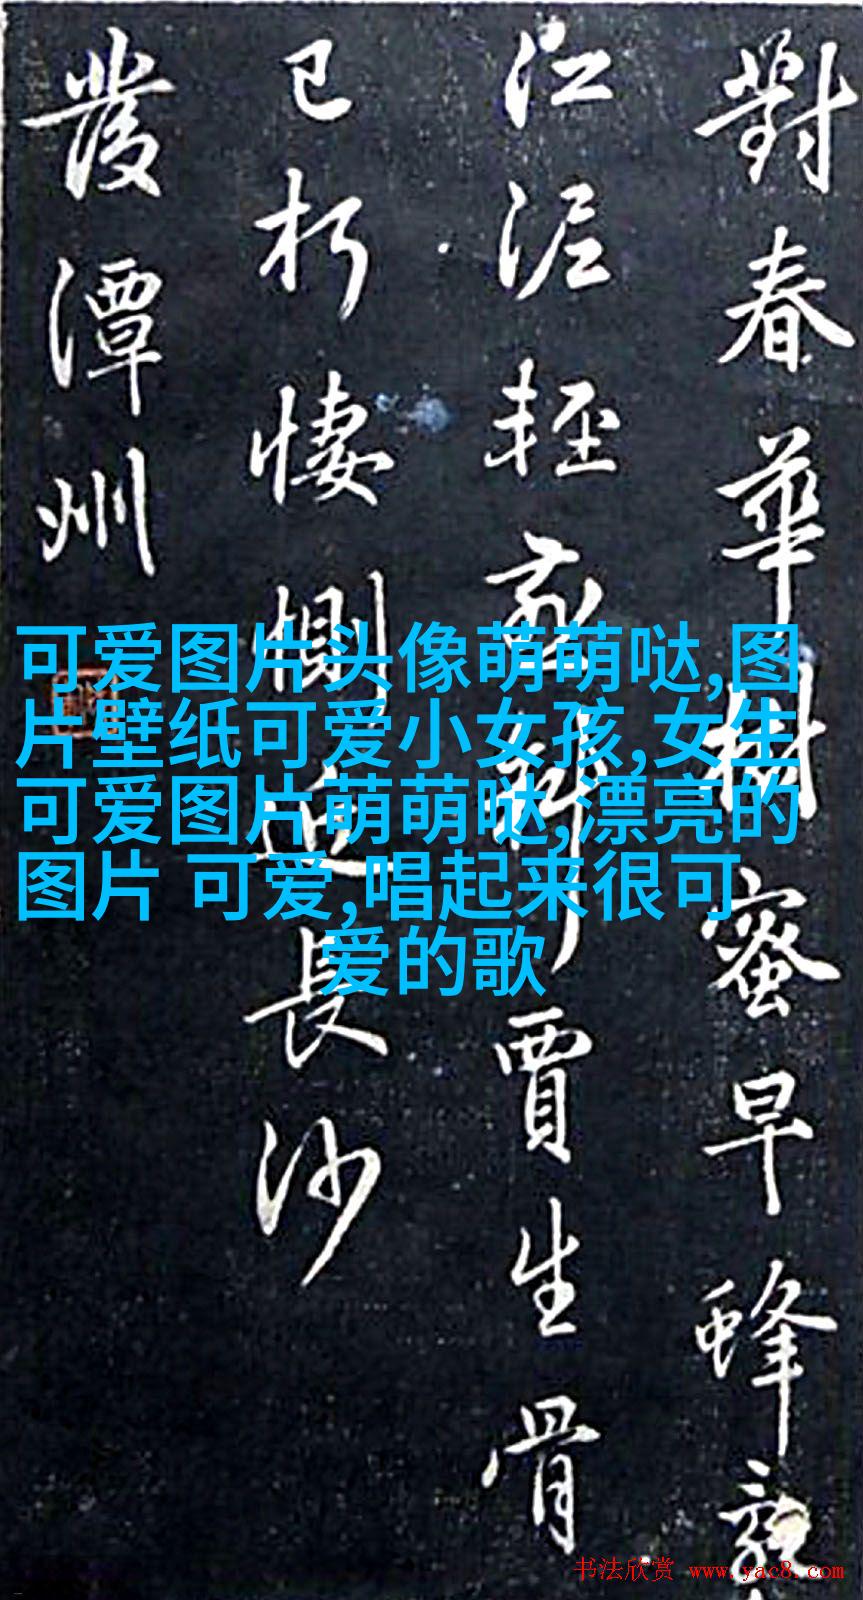 對春華樹蜜早蜂亂
江泥輕燕斜賈生骨
已朽悽惻近長沙
發潭州
可爱图片头像萌萌哒,图
片壁纸可爱小女孩,女生
可爱图片萌萌哒,漂亮的
图片 可爱,唱起来很可
爱的歌
书法欣赏 www.yac8.com